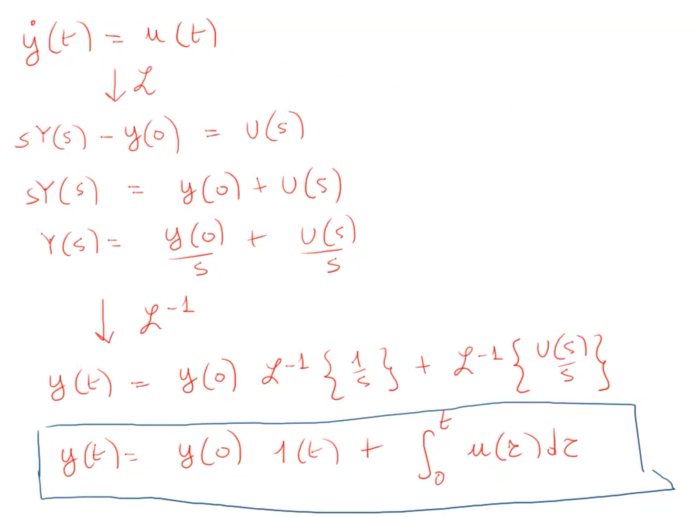 ẏ(t) = u(t)
↓ ℒ
sY(s) - y(0) = U(s)
sY(s) = y(0) + U(s)
Y(s) = y(0)/s + U(s)/s
↓ ℒ⁻¹
y(t) = y(0) ℒ⁻¹{1/s} + ℒ⁻¹{U(s)/s}
y(t) = y(0) 1(t) + ∫₀ᵗ u(τ)dτ